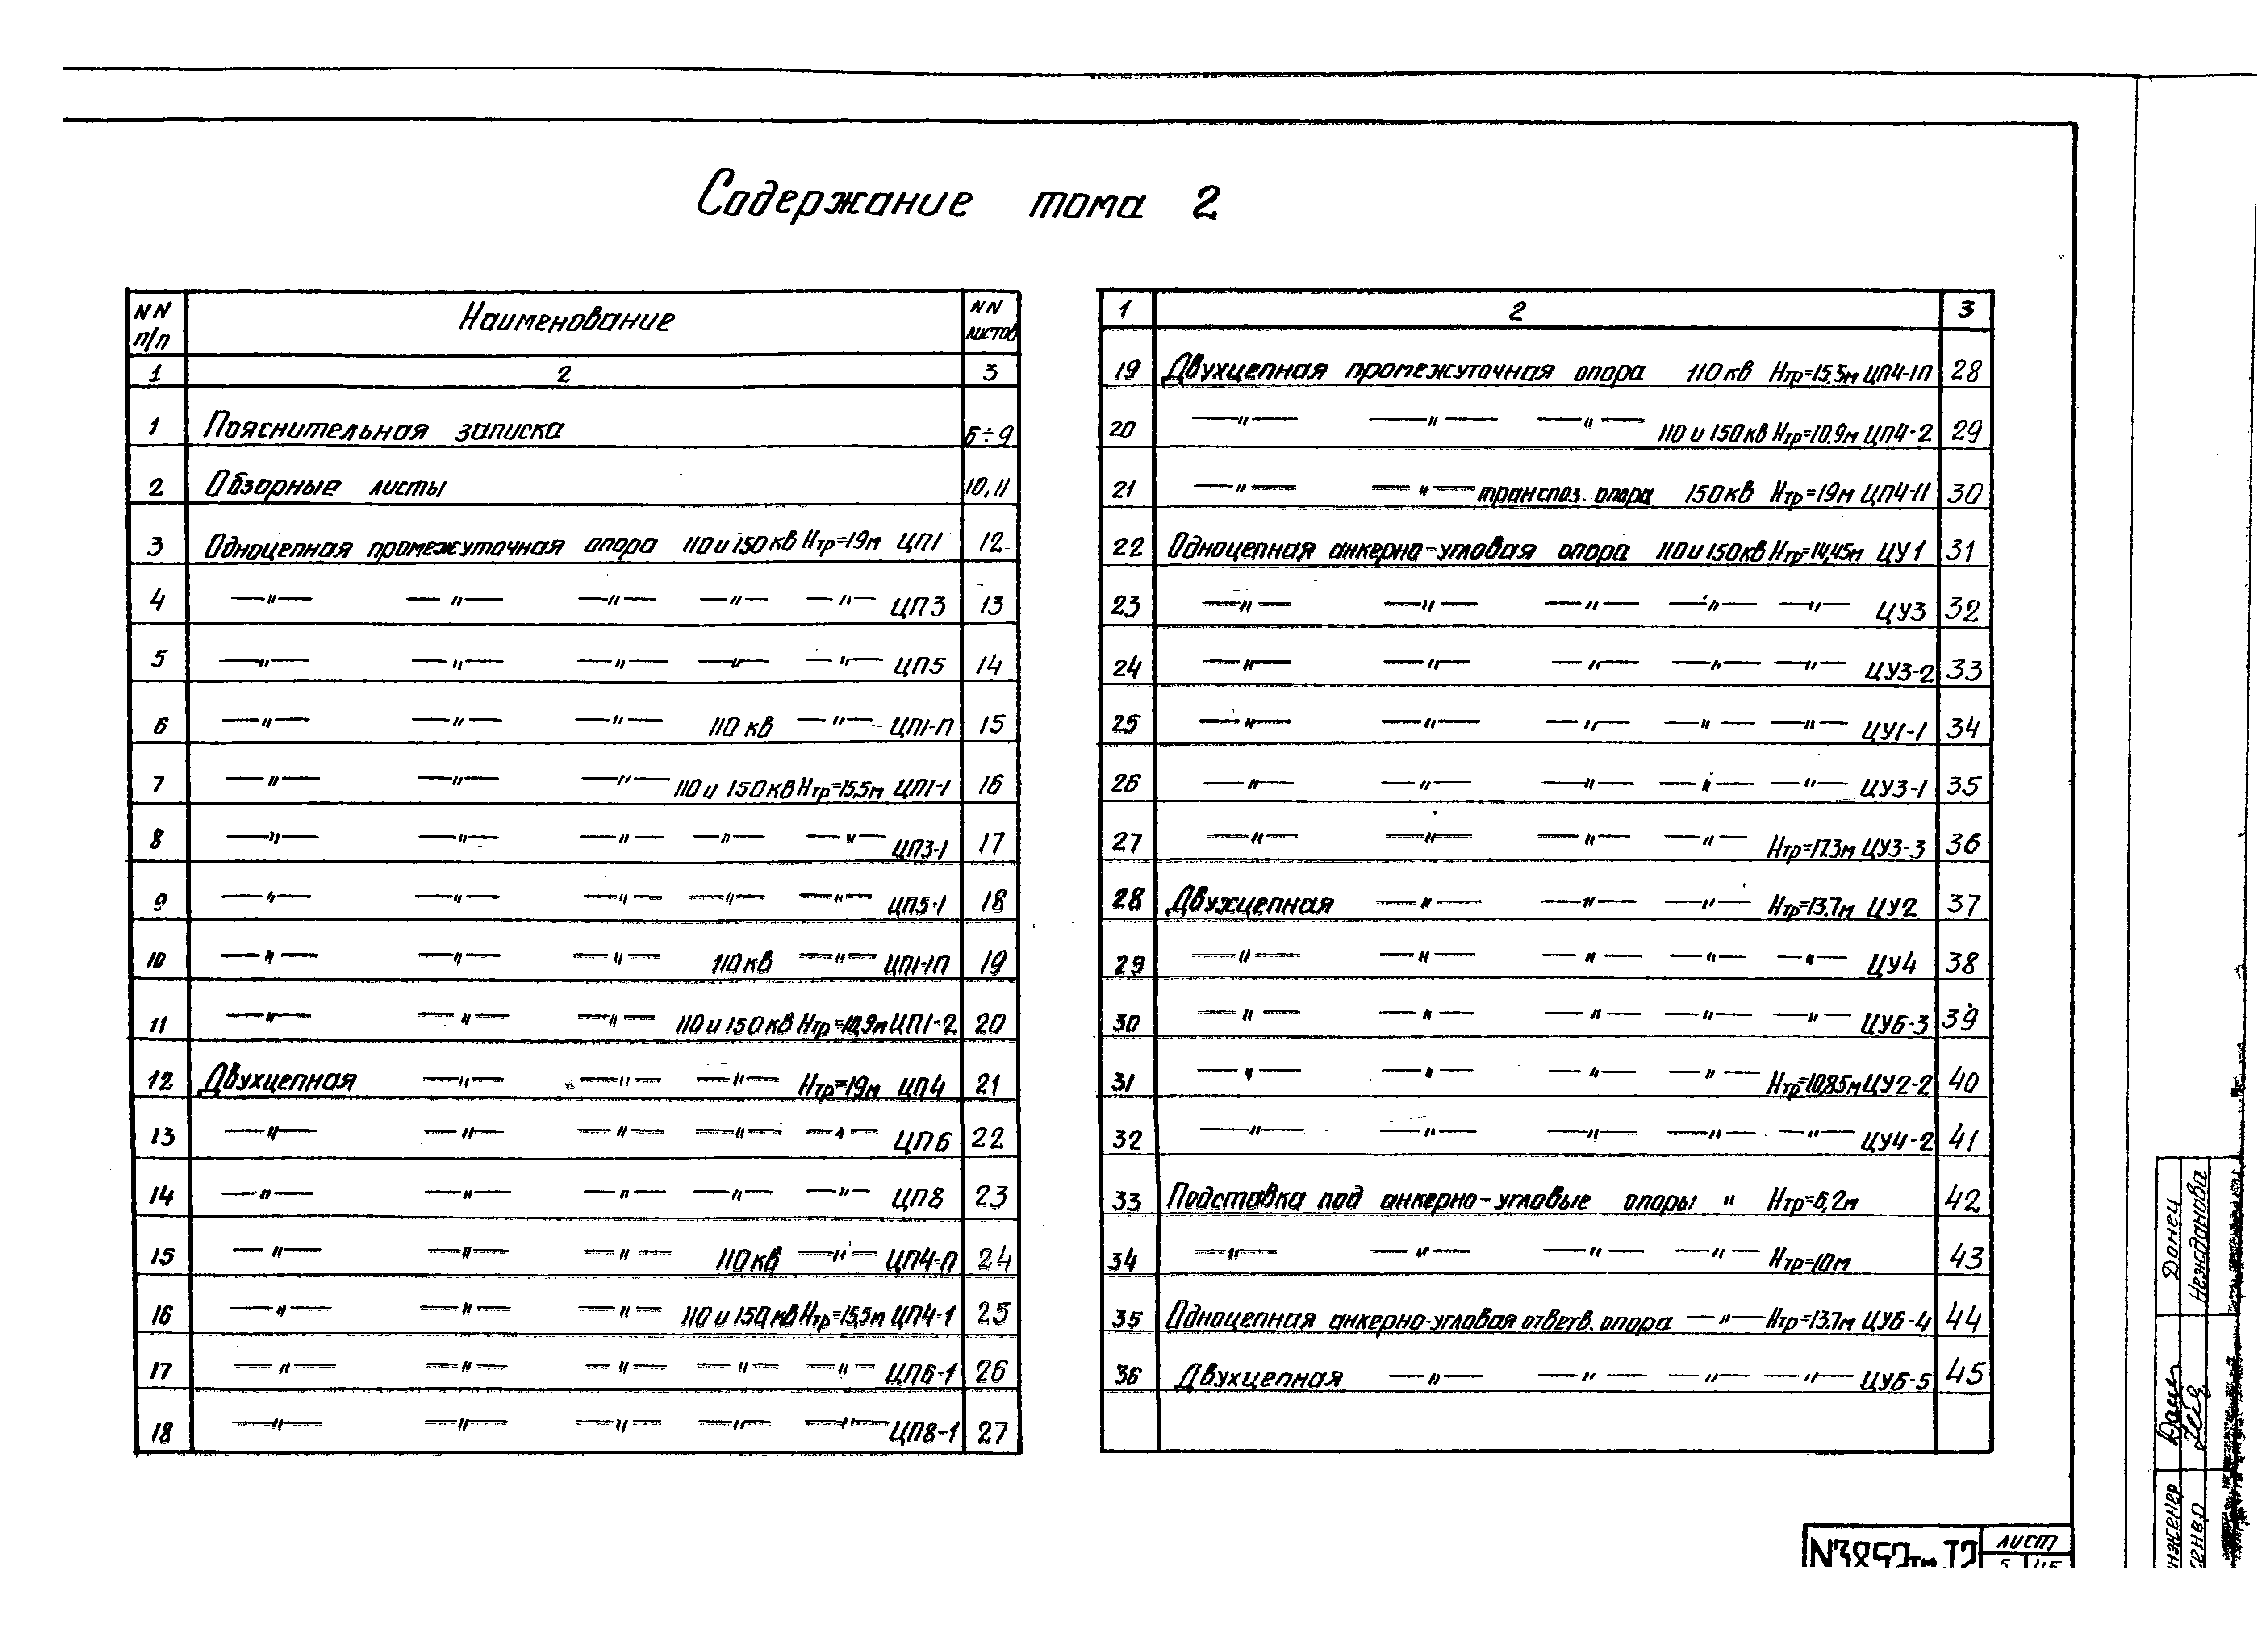 Содержание тома 2
NN п/п Наименование NN листов
1 2 3
1 Пояснительная записка 6÷9
2 Обзорные листы 10, 11
3 Одноцепная промежуточная опора 110 и 150 кв Нтр=19м ЦП1 12
4 —"— —"— —"— —"— —"— ЦП3 13
5 —"— —"— —"— —"— —"— ЦП5 14
6 —"— —"— —"— 110 кв —"— ЦП1-П 15
7 —"— —"— —"— 110 и 150 кв Нтр=15,5м ЦП1-1 16
8 —"— —"— —"— —"— —"— ЦП3-1 17
9 —"— —"— —"— —"— —"— ЦП5-1 18
10 —"— —"— —"— 110 кв —"— ЦП1-1П 19
11 —"— —"— —"— 110 и 150 кв Нтр=10,9м ЦП1-2 20
12 Двухцепная —"— —"— —"— Нтр=19м ЦП4 21
13 —"— —"— —"— —"— —"— ЦП6 22
14 —"— —"— —"— —"— —"— ЦП8 23
15 —"— —"— —"— 110 кв —"— ЦП4-П 24
16 —"— —"— —"— 110 и 150 кв Нтр=15,5м ЦП4-1 25
17 —"— —"— —"— —"— —"— ЦП6-1 26
18 —"— —"— —"— —"— —"— ЦП8-1 27
1 2 3
19 Двухцепная промежуточная опора 110 кв Нтр=15,5м ЦП4-1П 28
20 —"— —"— —"— 110 и 150 кв Нтр=10,9м ЦП4-2 29
21 —"— —"— транспоз. опора 150 кв Нтр=19м ЦП4-11 30
22 Одноцепная анкерно-угловая опора 110 и 150 кв Нтр=14,45м ЦУ1 31
23 —"— —"— —"— —"— —"— ЦУ3 32
24 —"— —"— —"— —"— —"— ЦУ3-2 33
25 —"— —"— —"— —"— —"— ЦУ1-1 34
26 —"— —"— —"— —"— —"— ЦУ3-1 35
27 —"— —"— —"— —"— Нтр=17.3м ЦУ3-3 36
28 Двухцепная —"— —"— —"— Нтр=13.7м ЦУ2 37
29 —"— —"— —"— —"— —"— ЦУ4 38
30 —"— —"— —"— —"— —"— ЦУ6-3 39
31 —"— —"— —"— —"— Нтр=10,85м ЦУ2-2 40
32 —"— —"— —"— —"— —"— ЦУ4-2 41
33 Подставка под анкерно-угловые опоры " Нтр=6,2м 42
34 —"— —"— —"— —"— Нтр=10м 43
35 Одноцепная анкерно-угловая ответв. опора —"— Нтр=13.7м ЦУ6-4 44
36 Двухцепная —"— —"— —"— —"— ЦУ6-5 45
Донец
Нежданова
N3852тм Т2 лист
5 45